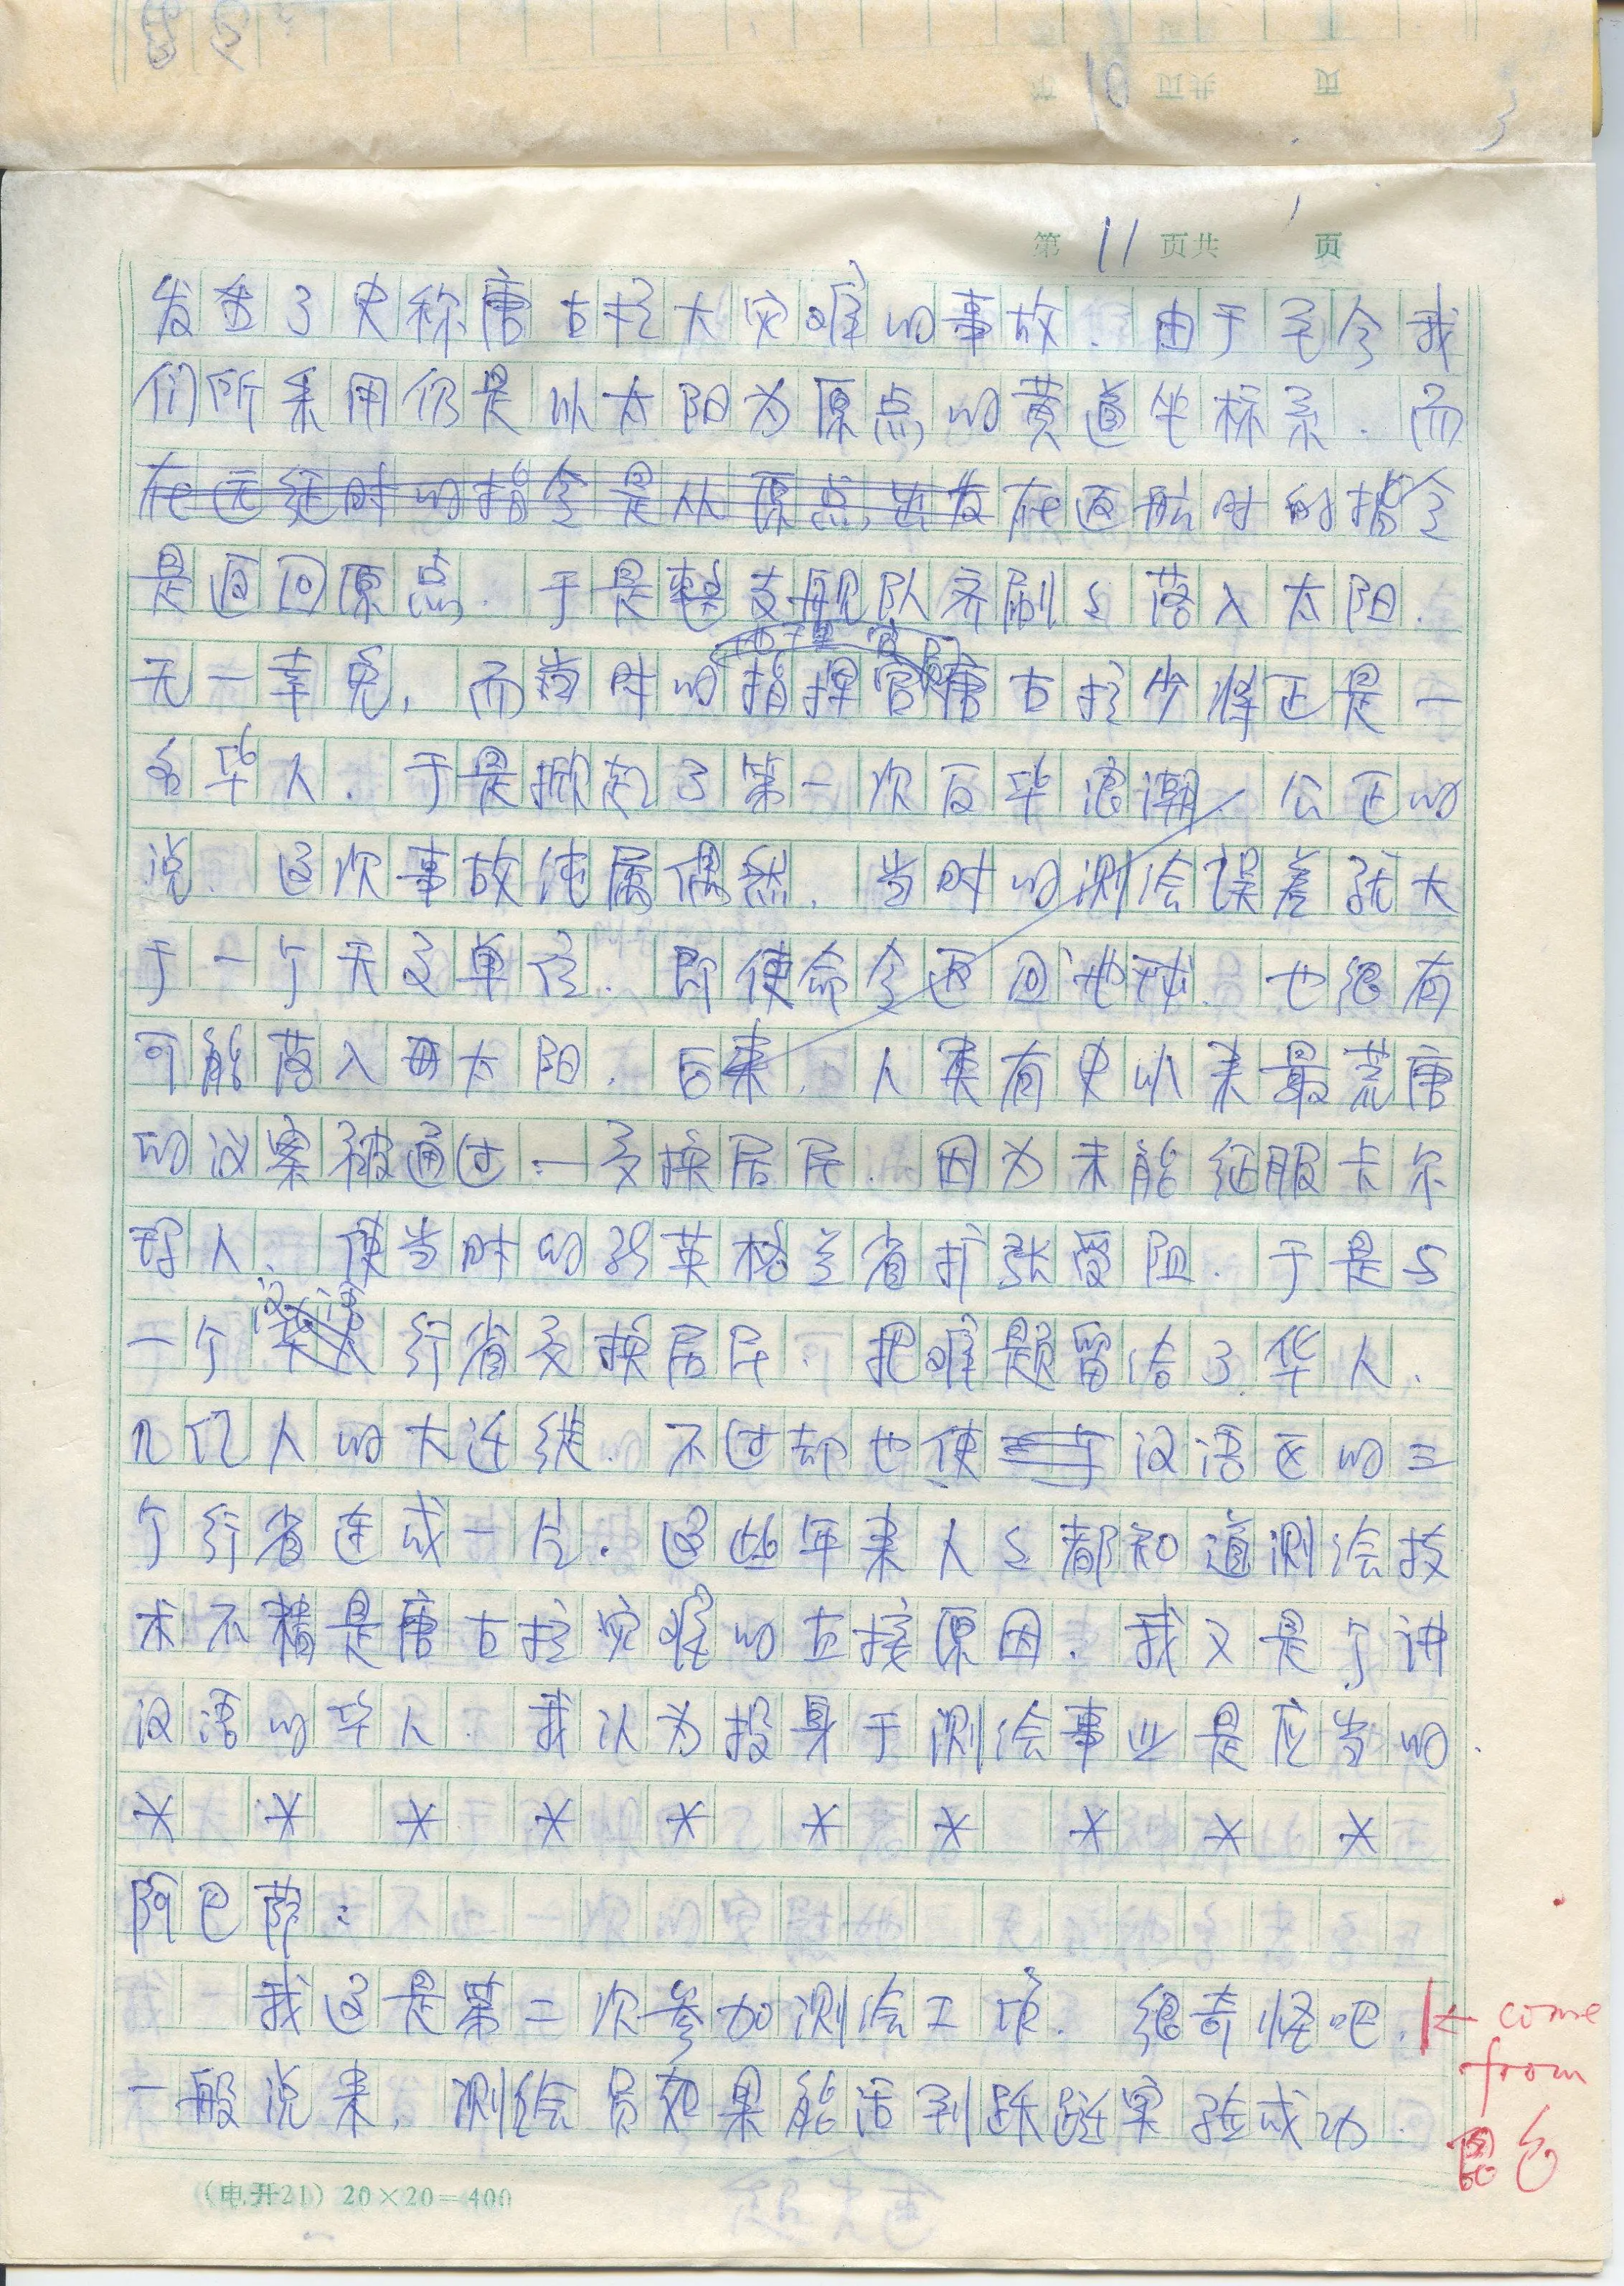 第 11 页共 页
发生了史称唐古拉大灾难的事故.由于宅今我
们所采用仍是以太阳为原点的黄道坐标系.而
在远征时的指令是从原点出发在返航时的指令
是返回原点.于是整支舰队齐刷々落入太阳.
无一幸免,而当时的指挥官唐古拉少将正是一
名华人.于是掀起了第一次反华浪潮.公正的
说.这次事故纯属偶然.当时的测绘误差就大
于一个天文单位.即使命令返回地球.也很有
可能落入太阳.后来.人类有史以来最荒唐
的议案被通过:—交换居民.因为未能征服卡尔
人、使当时的英格兰省扩张受阻.于是与
汉语
一个华人行省交换居民.把难题留给了华人.
几亿人的大迁徙.不过却也使汉语区的三
个行省连成一片.这些年来人々都知道测绘技
术不精是唐古拉灾难的直接原因.我又是个讲
汉语的华人.我认为投身于测绘事业是应当的.
* * * * * * * * * *
阿巴萨:
我这是第二次参加测绘工业.很奇怪吧.
一般说来,测绘员如果能活到跃迁实验成功.
← come
from
(电开21) 20×20=400